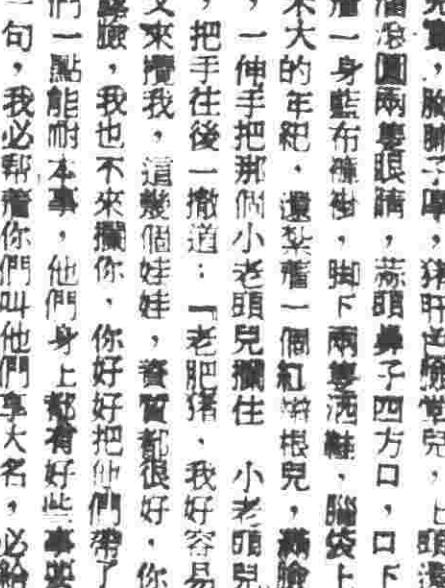 猪肝色臉膛兒，
滾圓兩隻眼睛，蒜頭鼻子四方口，口下
一身藍布褲褂，脚下兩隻洒鞋，腦袋上
大的年紀，還紮着一個紅辮根兒，滿臉
，一伸手把那個小老頭兒攔住 小老頭兒
，把手往後一撤道：「老肥猪，我好容易
又來攪我，這幾個娃娃，資質都很好，你
露臉，我也不來攔你，你好好把他們帶了
們一點能耐本事，他們身上都有好些事
一句，我必幫着你們叫他們享大名，必給